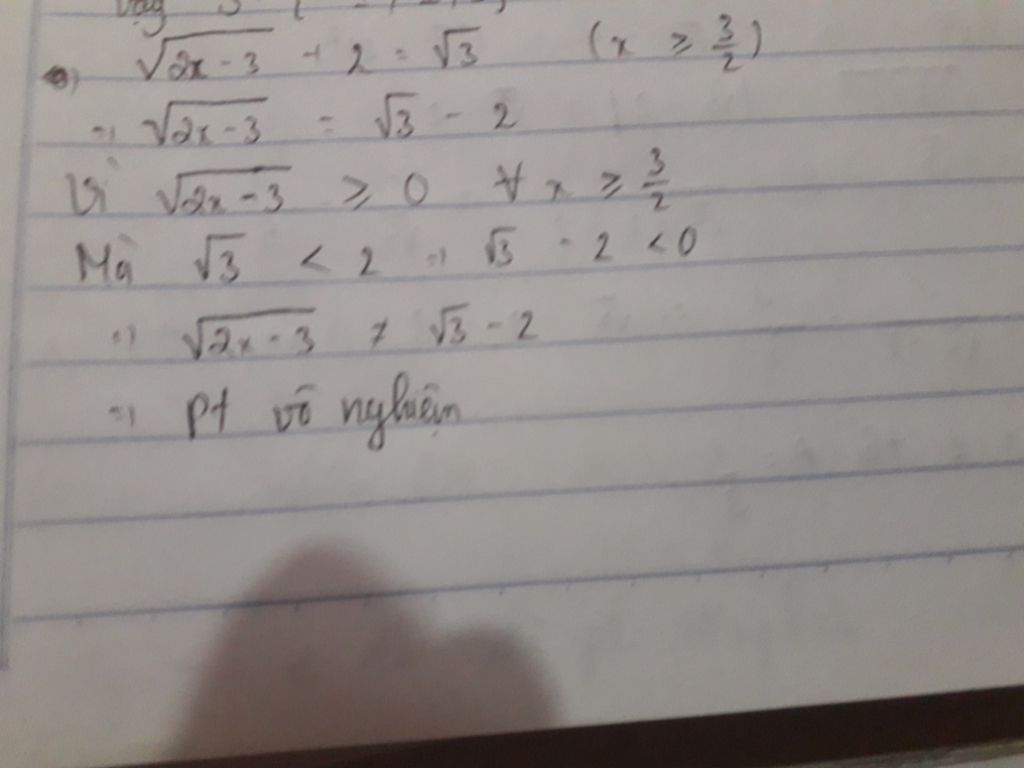 √(2x - 3) + 2 = √3 (x ≥ 3/2)
=> √(2x - 3) = √3 - 2
Vì √(2x - 3) ≥ 0 ∀ x ≥ 3/2
Mà √3 < 2 => √3 - 2 < 0
=> √(2x - 3) ≠ √3 - 2
=> pt vô nghiệm